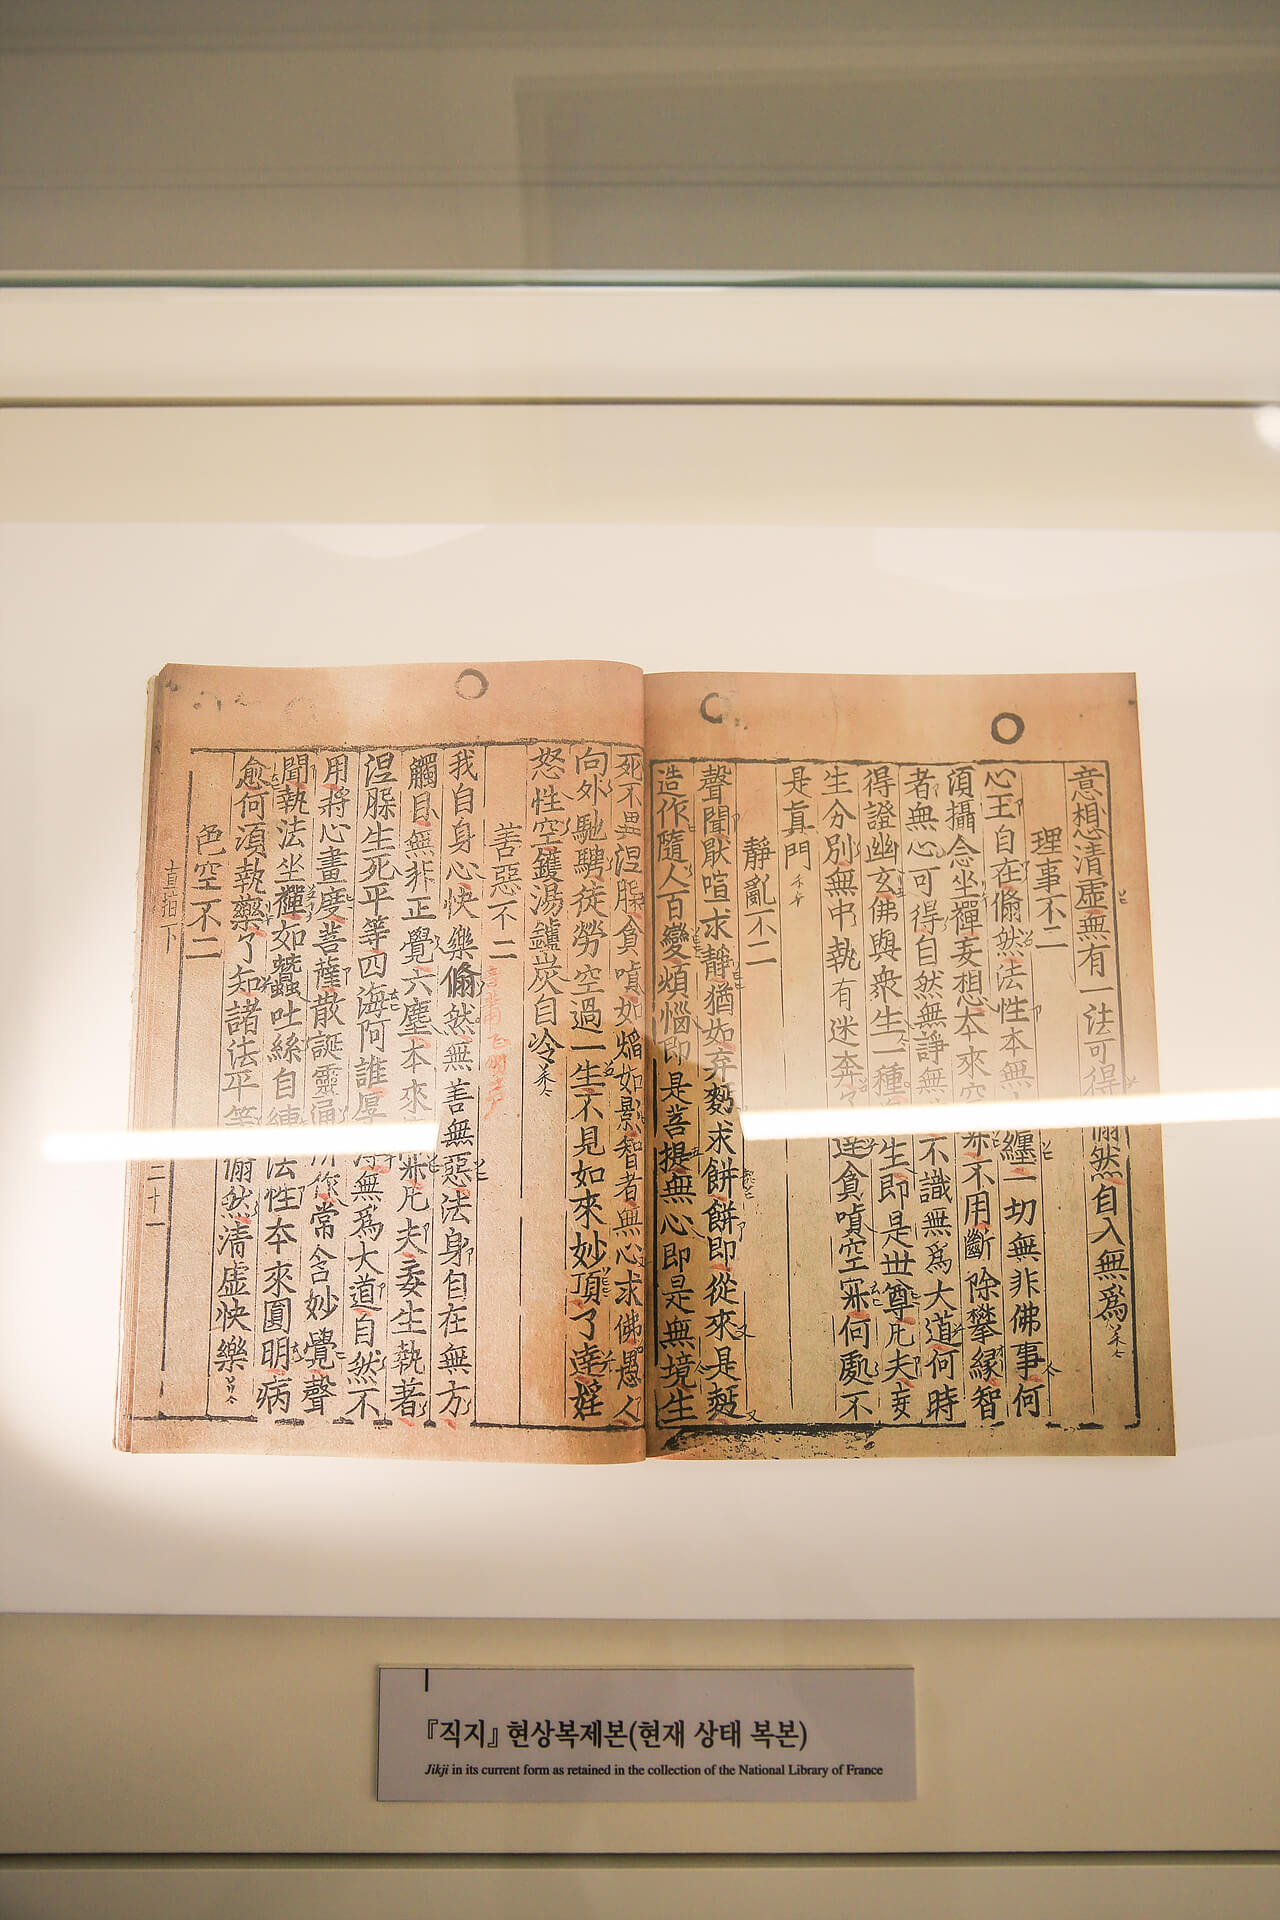 意想清虛無有一法可得翛然自入無爲
理事不二
心王自在翛然法性本無纏一切無非佛事何
湏攝念坐禪妄想本來空寂不用斷除攀緣智
者無心可得自然無諍無不識無爲大道何時
得證幽玄佛與衆生一種生即是世尊凡夫妄
生分別無中執有迷奔了達貪嗔空寂何處不
是真門
靜亂不二
聲聞厭喧求靜猶如弃麪求餅餅即從來是麪
造作隨人百變煩惱即是菩提無心即是無境生
死不異涅槃貪嗔如焰如影智者無心求佛愚人
向外馳騁徒勞空過一生不見如來妙頂了達婬
怒性空鑊湯鑪炭自冷
善惡不二
我自身心快樂翛然無善無惡法身自在無方
觸目無非正覺六塵本來寂凡夫妄生執著
涅槃生死平等四海阿誰厚薄無爲大道自然不
用將心畫度菩薩散誕靈通所作常含妙覺聲
聞執法坐禪如蠶吐絲自縛法性本來圓明病
愈何湏執藥了知諸法平等翛然清虛快樂
色空不二
直指下 二十一
『직지』 현상복제본(현재 상태 복본)
Jikji in its current form as retained in the collection of the National Library of France